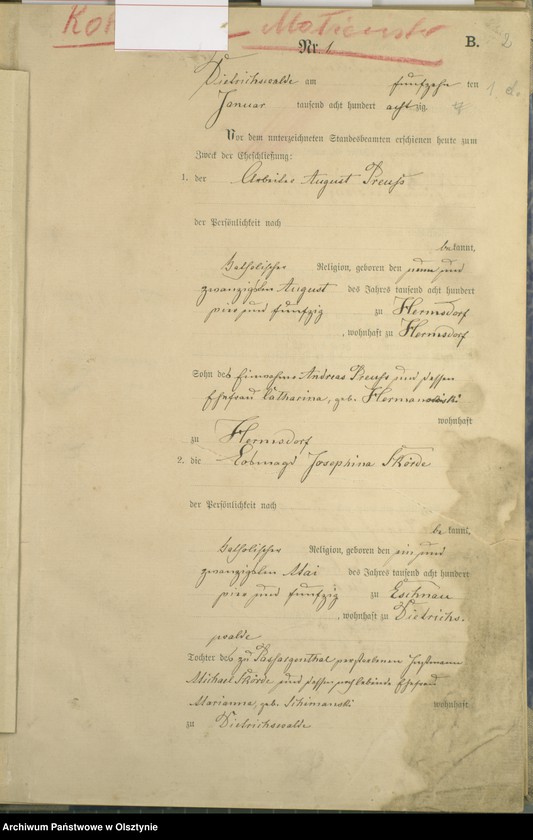 Nr. 1
B. 2
Dietrichswalde am fünfzehn ten
Januar tausend acht hundert achtzig
Vor dem unterzeichneten Standesbeamten erschienen heute zum
Zweck der Eheschließung:
1. der Arbeiter August Preuß
der Persönlichkeit nach
bekannt,
katholischer Religion, geboren den neun und
zwanzigsten August des Jahres tausend acht hundert
vier und fünfzig zu Hermsdorf
, wohnhaft zu Hermsdorf
Sohn des Einwohner Andreas Preuß und dessen
Ehefrau Catharina, geb.
wohnhaft
zu Hermsdorf
2. die Losmagd Josephina Skörde
der Persönlichkeit nach
bekannt,
katholischer Religion, geboren den ein und
zwanzigsten Mai des Jahres tausend acht hundert
vier und fünfzig zu Eschnau
, wohnhaft zu Dietrichs-
walde
Tochter des zu Passargenthal verstorbenen Instmann
Michael Skörde und dessen noch lebende Ehefrau
Marianna, geb. Schimanski wohnhaft
zu Dietrichswalde
Archiwum Państwowe w Olsztynie